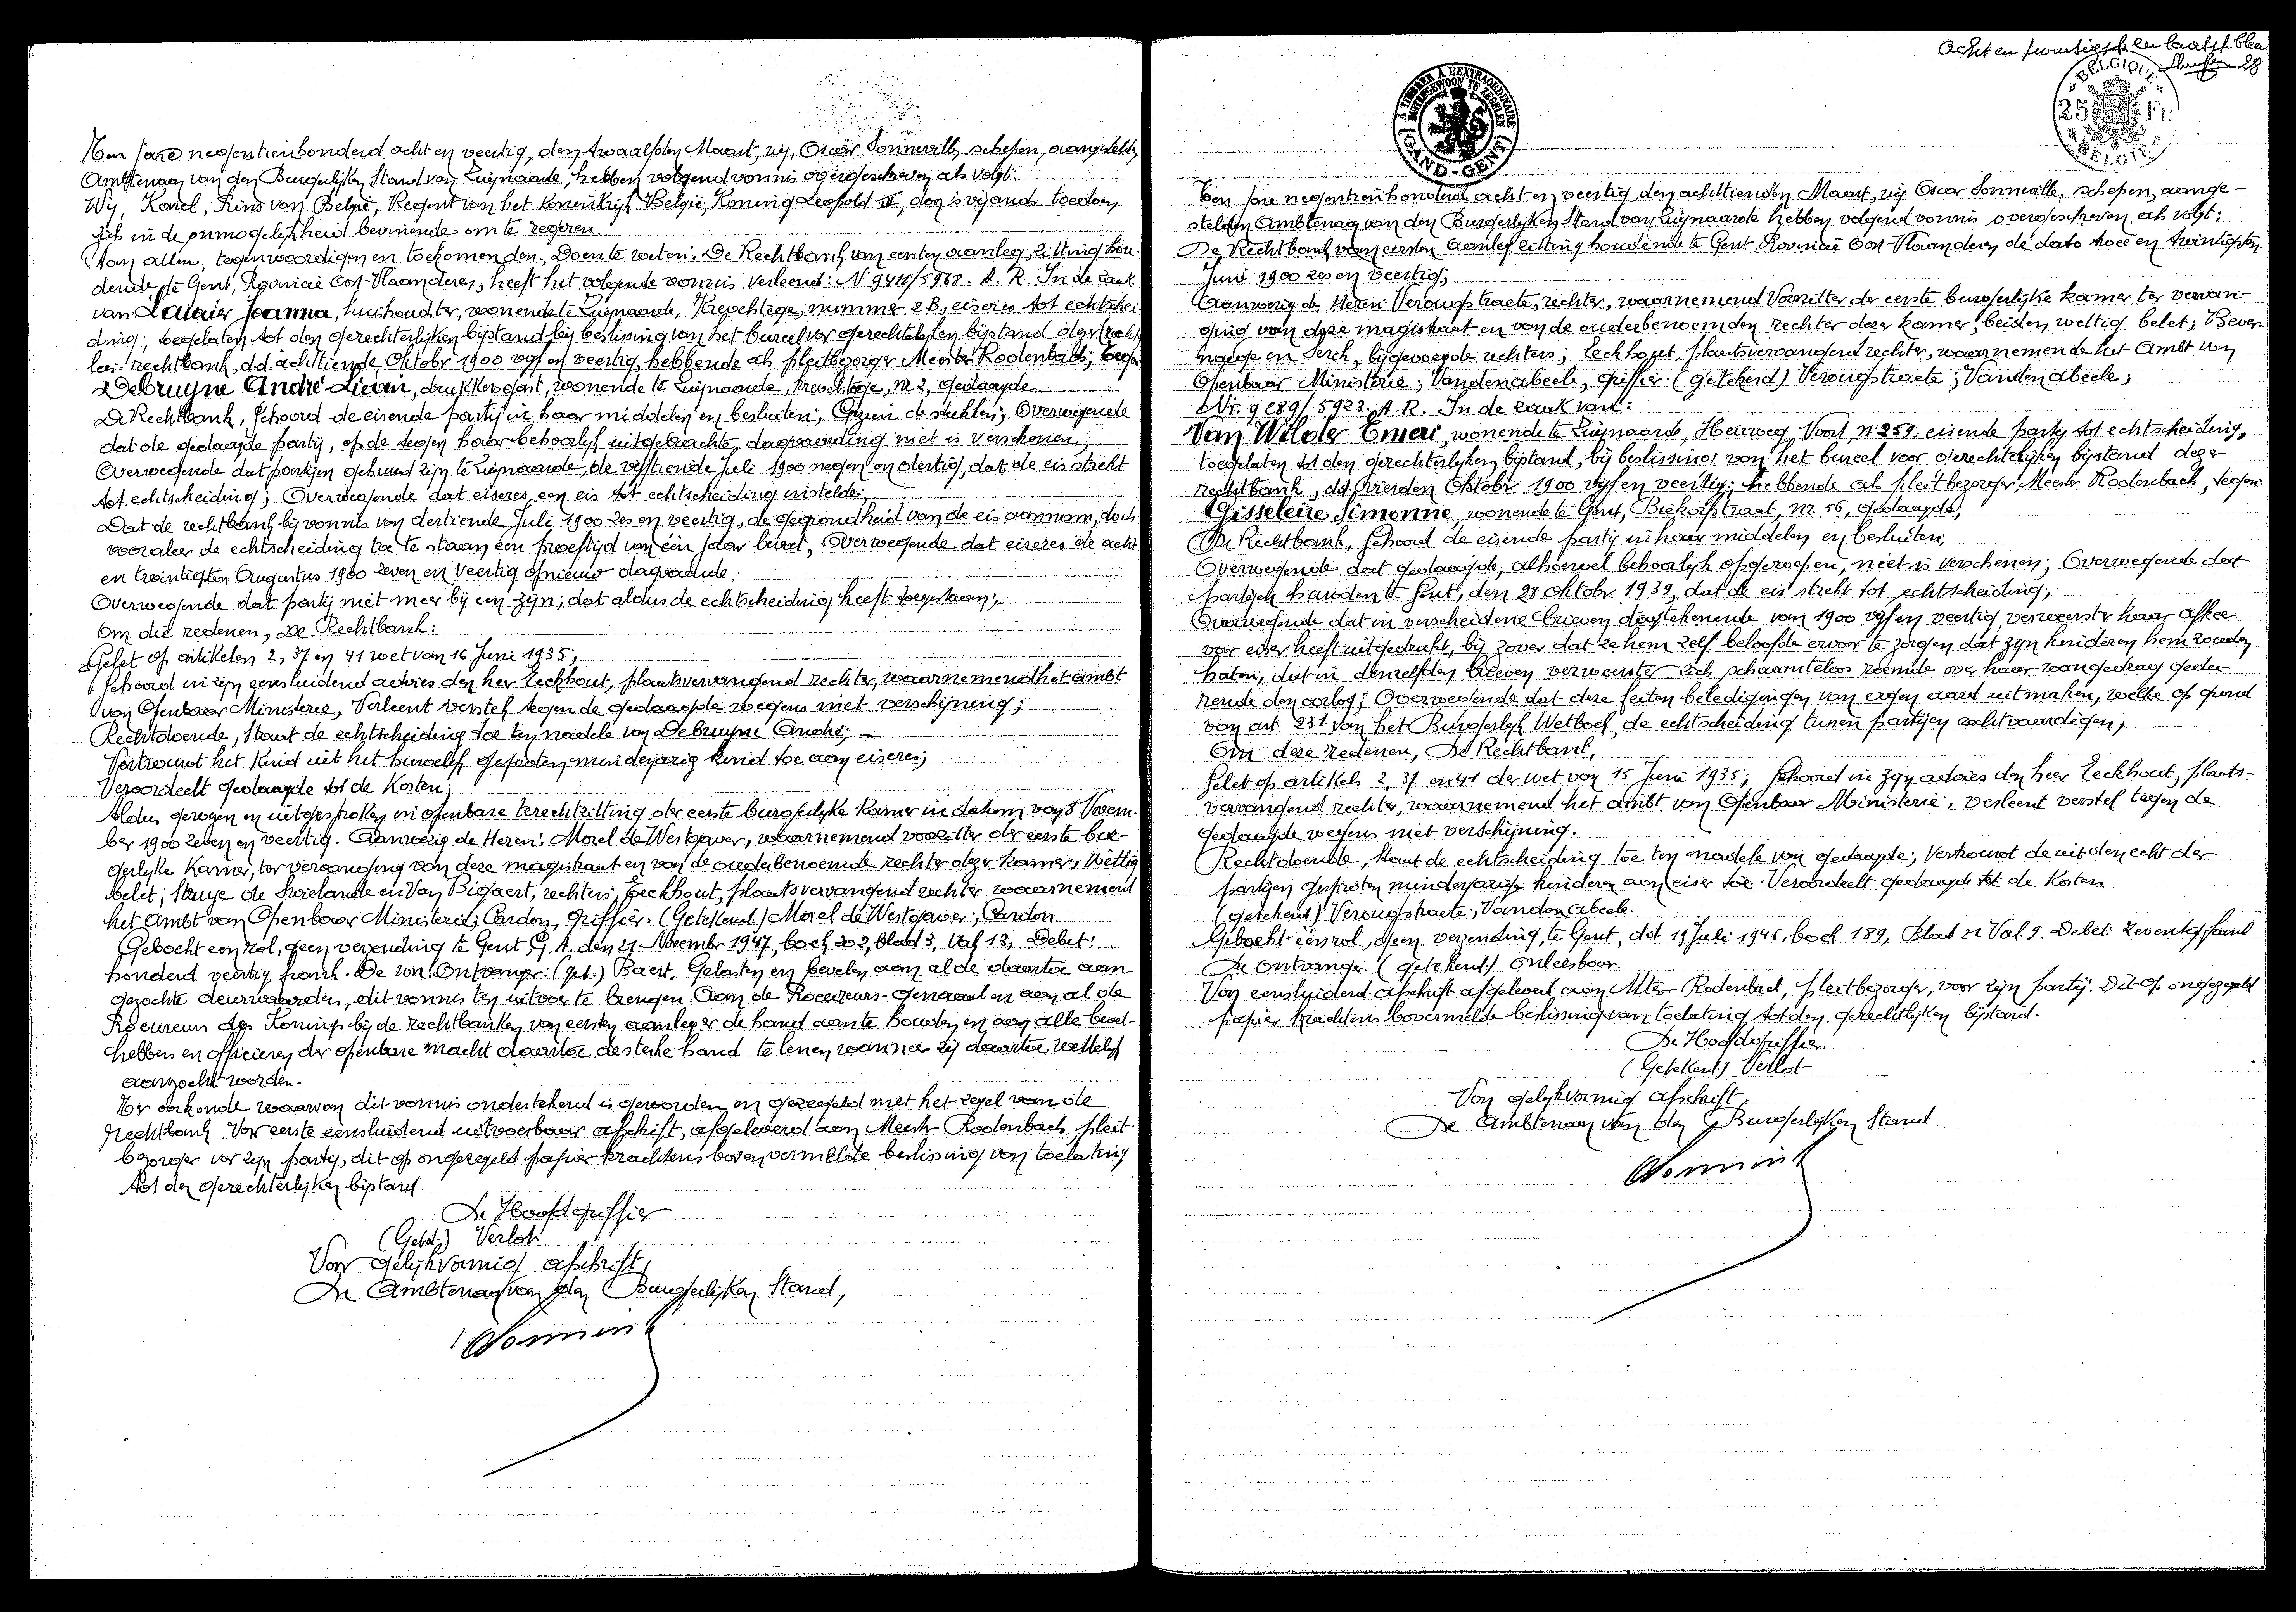 Ten Jare negentienhonderd acht en veertig, den twaalfden Maart, wij, Oscar Sonneville, schepen, aangestelde
Ambtenaar van den Burgerlijken Stand van Zwijnaarde, hebben volgend vonnis overgeschreven als volgt:
Wij, Karel, Prins van België, Regent van het Koninkrijk België, Koning Leopold III, door 's vijands toedoen
zich in de onmogelijkheid bevindende om te regeren.
Aan allen, tegenwoordigen en toekomenden. Doen te weten: De Rechtbank van eersten aanleg, zitting hou-
dende te Gent, Provincie Oost-Vlaanderen, heeft het volgende vonnis verleend: N° 9411/5968. A. R. In de zaak
van Joanna, huishoudster, wonende te Zwijnaarde, nummer 2B, eiseres tot echtschei-
ding, toegelaten tot den gerechterlijken bijstand bij beslissing van het bureel vor gerechtelijken bijstand dezer
rechtbank, d.d. achttiende Oktober 1900 vijf en veertig, hebbende als pleitbezorger Meester Rodenbach; tegen
Debruyne André Lievin, drukkersgast, wonende te Zwijnaarde, nr 2, gedaagde.
De Rechtbank, Gehoord de eisende partij in haar middelen en besluiten; Gezien de stukken; Overwegende
dat de gedaagde partij, op de tegen haar behoorlijk uitgebrachte dagvaarding niet is verschenen;
Overwegende dat partijen gehuwd zijn te Zwijnaarde, de vijftiende Juli 1900 negen en dertig, dat de eis strekt
tot echtscheiding; Overwegende dat eiseres een eis tot echtscheiding instelde;
Dat de rechtbank bij vonnis van dertiende Juli 1900 zes en veertig, de gegrondheid van de eis aannam, doch
vooraleer de echtscheiding toe te staan een proeftijd van één jaar beval, Overwegende dat eiseres de acht
en twintigsten Augustus 1900 zeven en veertig opnieuw dagvaarde.
Overwegende dat partij niet meer bij een zijn; dat aldus de echtscheiding heeft toegestaan;
Om die redenen, De Rechtbank:
Gelet op artikelen 2, 37 en 41 wet van 16 Juni 1935;
Gehoord in zijn eensluidend advies den heer Eeckhout, plaatsvervangend rechter, waarnemend het ambt
van Openbaar Ministerie, Verleent verstek tegen de gedaagde wegens niet verschijning;
Rechtdoende, Staat de echtscheiding toe ten nadele van Debruyne André;
Vertrouwt het Kind uit het huwelijk gesproten minderjarig kind toe aan eiseres;
Veroordeelt gedaagde tot de Kosten;
Aldus gewezen en uitgesproken in openbare terechtzitting der eerste burgerlijke Kamer in datum van 8 Novem-
ber 1900 zeven en veertig. Aanwezig de Heren: Morel de Westgaver, waarnemend voorzitter der eerste bur-
gerlijke Kamer, ter vervanging van deze magistraat en van de ouderbenoemde rechter dezer Kamer, wettig
belet; Struye de Swielande en Van Bogaert, rechters; Eeckhout, plaatsvervangend rechter waarnemend
het Ambt van Openbaar Ministerie; Cardon, Griffier. (Getekend.) Morel de Westgaver; Cardon
Geboekt een rol, geen verzending te Gent G. A. den 21 November 1947, boek 202, blad 3, Vak 13, Debet:
honderd veertig frank. De wn. Ontvanger: (get.) Baert. Gelasten en bevelen aan al de daartoe aan
gezochte deurwaarders, dit vonnis ten uitvoer te brengen. Aan de Procureurs-Generaal en aan al de
Procureurs des Konings bij de rechtbanken van eersten aanleg er de hand aan te houden en aan alle bevel-
hebbers en officieren der openbare macht daartoe de sterke hand te lenen wanneer zij daartoe wettelijk
aanzocht worden.
Ter oorkonde waarvan dit vonnis ondertekend is geworden en gezegeld met het zegel van de
rechtbank. Vor eerste eensluidend uitvoerbaar afschrift, afgeleverd aan Meester Rodenbach, pleit-
bezorger vor zijn partij, dit op ongezegeld papier krachtens bovenvermelde beslissing van toelating
tot den gerechterlijken bijstand.
De Hoofdgriffier
(Getek.) Verlot
Voor gelijkvormig afschrift,
De Ambtenaar van den Burgerlijken Stand,
Acht en twintigste en laatste blad
28
A TIMBRER A L'EXTRAORDINAIRE
BUITENGEWOON TE ZEGELEN
GAND-GENT
BELGIQUE
25 Fr
BELGIE
Ten Jare negentienhonderd acht en veertig, den achttienden Maart, wij Oscar Sonneville, schepen, aange-
stelden Ambtenaar van den Burgerlijken Stand van Zwijnaarde hebben volgend vonnis overgeschreven als volgt:
De Rechtbank van eersten aanleg zitting houdende te Gent, Provincie Oost-Vlaanderen de dato twee en twintigsten
Juni 1900 zes en veertig;
Aanwezig de Heren: Verougstraete, rechter, waarnemend Voorzitter der eerste burgerlijke kamer ter vervan-
ging van deze magistraat en van de ouderbenoemden rechter dezer kamer, beiden wettig belet; Bever-
nage en Serck, bijgevoegde rechters; Eeckhout, plaatsvervangend rechter, waarnemende het Ambt van
Openbaar Ministerie; Vandenabeele, griffier. (getekend) Verougstraete; Vandenabeele;
Nr. 9289/5923. A. R. In de zaak van:
Van Wilder Omer, wonende te Zwijnaarde, Heirweg Voort, n° 259. eisende partij tot echtscheiding,
toegelaten tot den gerechterlijken bijstand, bij beslissing van het bureel voor gerechtelijken bijstand dezer
rechtbank, dd. vierden Oktober 1900 vijf en veertig; hebbende als pleitbezorger Meester Rodenbach, tegen:
Gisseleire Simonne, wonende te Gent, Biekorfstraat, nr. 56, gedaagde;
De Rechtbank, Gehoord de eisende partij in haar middelen en besluiten;
Overwegende dat gedaagde, alhoewel behoorlijk opgeroepen, niet is verschenen; Overwegende dat
partijen huwden te Gent, den 28 Oktober 1939, dat de eis strekt tot echtscheiding;
Overwegende dat in verscheidene brieven dagtekenende van 1900 vijf en veertig verweerster haar afkeer
voor eiser heeft uitgedrukt, bij zover dat ze hem zelf beloofde ervoor te zorgen dat zijn kinderen hem zouden
haten, dat in denzelfden brieven verweerster zich schaamteloos roemde over haar wangedrag gedu-
rende den oorlog; Overwegende dat deze feiten beledigingen van ergen aard uitmaken, welke op grond
van art. 231 van het Burgerlijk Wetboek, de echtscheiding tussen partijen rechtvaardigen;
Om deze redenen, De Rechtbank,
Gelet op artikels 2, 37 en 41 der wet van 15 Juni 1935; Gehoord in zijn advies den heer Eeckhout, plaats-
vervangend rechter, waarnemend het ambt van Openbaar Ministerie; verleent verstek tegen de
gedaagde wegens niet verschijning.
Rechtdoende, Staat de echtscheiding toe ten nadele van gedaagde; Vertrouwt de uit den echt der
partijen gesproten minderjarige kinderen aan eiser toe. Veroordeelt gedaagde tot de Kosten.
(getekend) Verougstraete; Vandenabeele.
Geboekt één rol, geen verzending, te Gent, dd. 19 Juli 1946, boek 189, Blad 21 Vak 9. Debet: zeventig frank
De Ontvanger. (getekend) Onleesbaar.
Voor eensluidend afschrift afgeleverd aan Mter Rodenbach, pleitbezorger, voor zijn partij. Dit op ongezegeld
papier krachtens bovenvermelde beslissing van toelating tot den gerechtlijken bijstand.
De Hoofdgriffier.
(Getekend) Verlot
Voor gelijkvormig afschrift
De Ambtenaar van den Burgerlijken Stand.